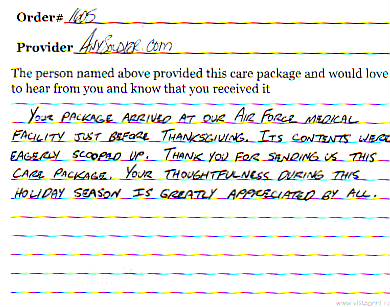 Order# 1605
Provider AnySoldier.com
The person named above provided this care package and would love
to hear from you and know that you received it
YOUR PACKAGE ARRIVED AT OUR AIR FORCE MEDICAL
FACILITY JUST BEFORE THANKSGIVING. ITS CONTENTS WERE
EAGERLY SCOOPED UP. THANK YOU FOR SANDING US THIS
CARE PACKAGE. YOUR THOUGHTFULNESS DURING THIS
HOLIDAY SEASON IS GREATLY APPRECIATED BY ALL.